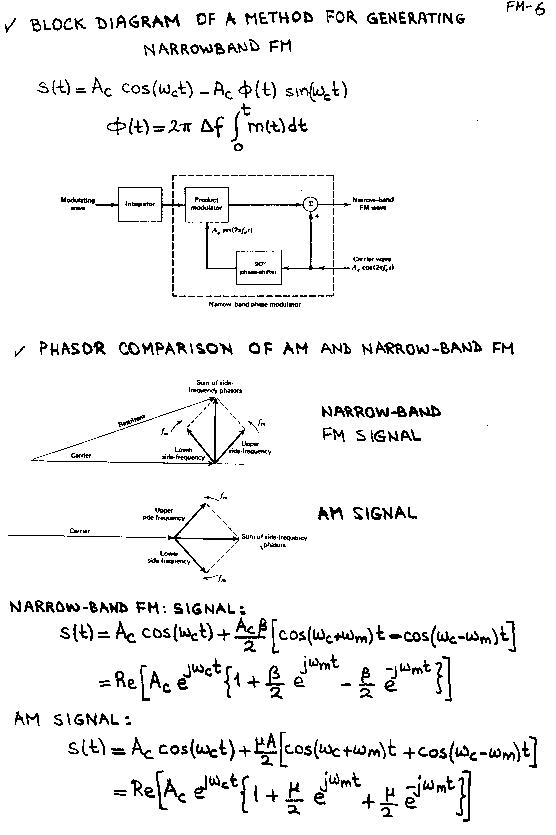 FM-6
✓ BLOCK DIAGRAM OF A METHOD FOR GENERATING
NARROWBAND FM
s(t) = Ac cos(ωct) – Ac ϕ(t) sin(ωct)
ϕ(t) = 2π Δf ∫₀ᵗ m(t)dt
Modulating
wave
Integrator
Product
modulator
Σ
+
Narrow-band
FM wave
Ac sin(2πfct)
90°
phase-shifter
Carrier wave
Ac cos(2πfct)
Narrow band phase modulator
✓ PHASOR COMPARISON OF AM AND NARROW-BAND FM
Sum of side-
frequency phasors
Resultant
fm
fm
Carrier
Lower
side-frequency
Upper
side-frequency
NARROW-BAND
FM SIGNAL
fm
Upper
side frequency
Carrier
Sum of side-frequency
phasors
Lower
side-frequency
fm
AM SIGNAL
NARROW-BAND FM: SIGNAL:
s(t) = Ac cos(ωct) + Acβ/2 [cos(ωc+ωm)t – cos(ωc-ωm)t]
= Re[Ac e^jωct {1 + β/2 e^jωmt – β/2 e^-jωmt}]
AM SIGNAL:
s(t) = Ac cos(ωct) + μA/2 [cos(ωc+ωm)t + cos(ωc-ωm)t]
= Re[Ac e^jωct {1 + μ/2 e^jωmt + μ/2 e^-jωmt}]